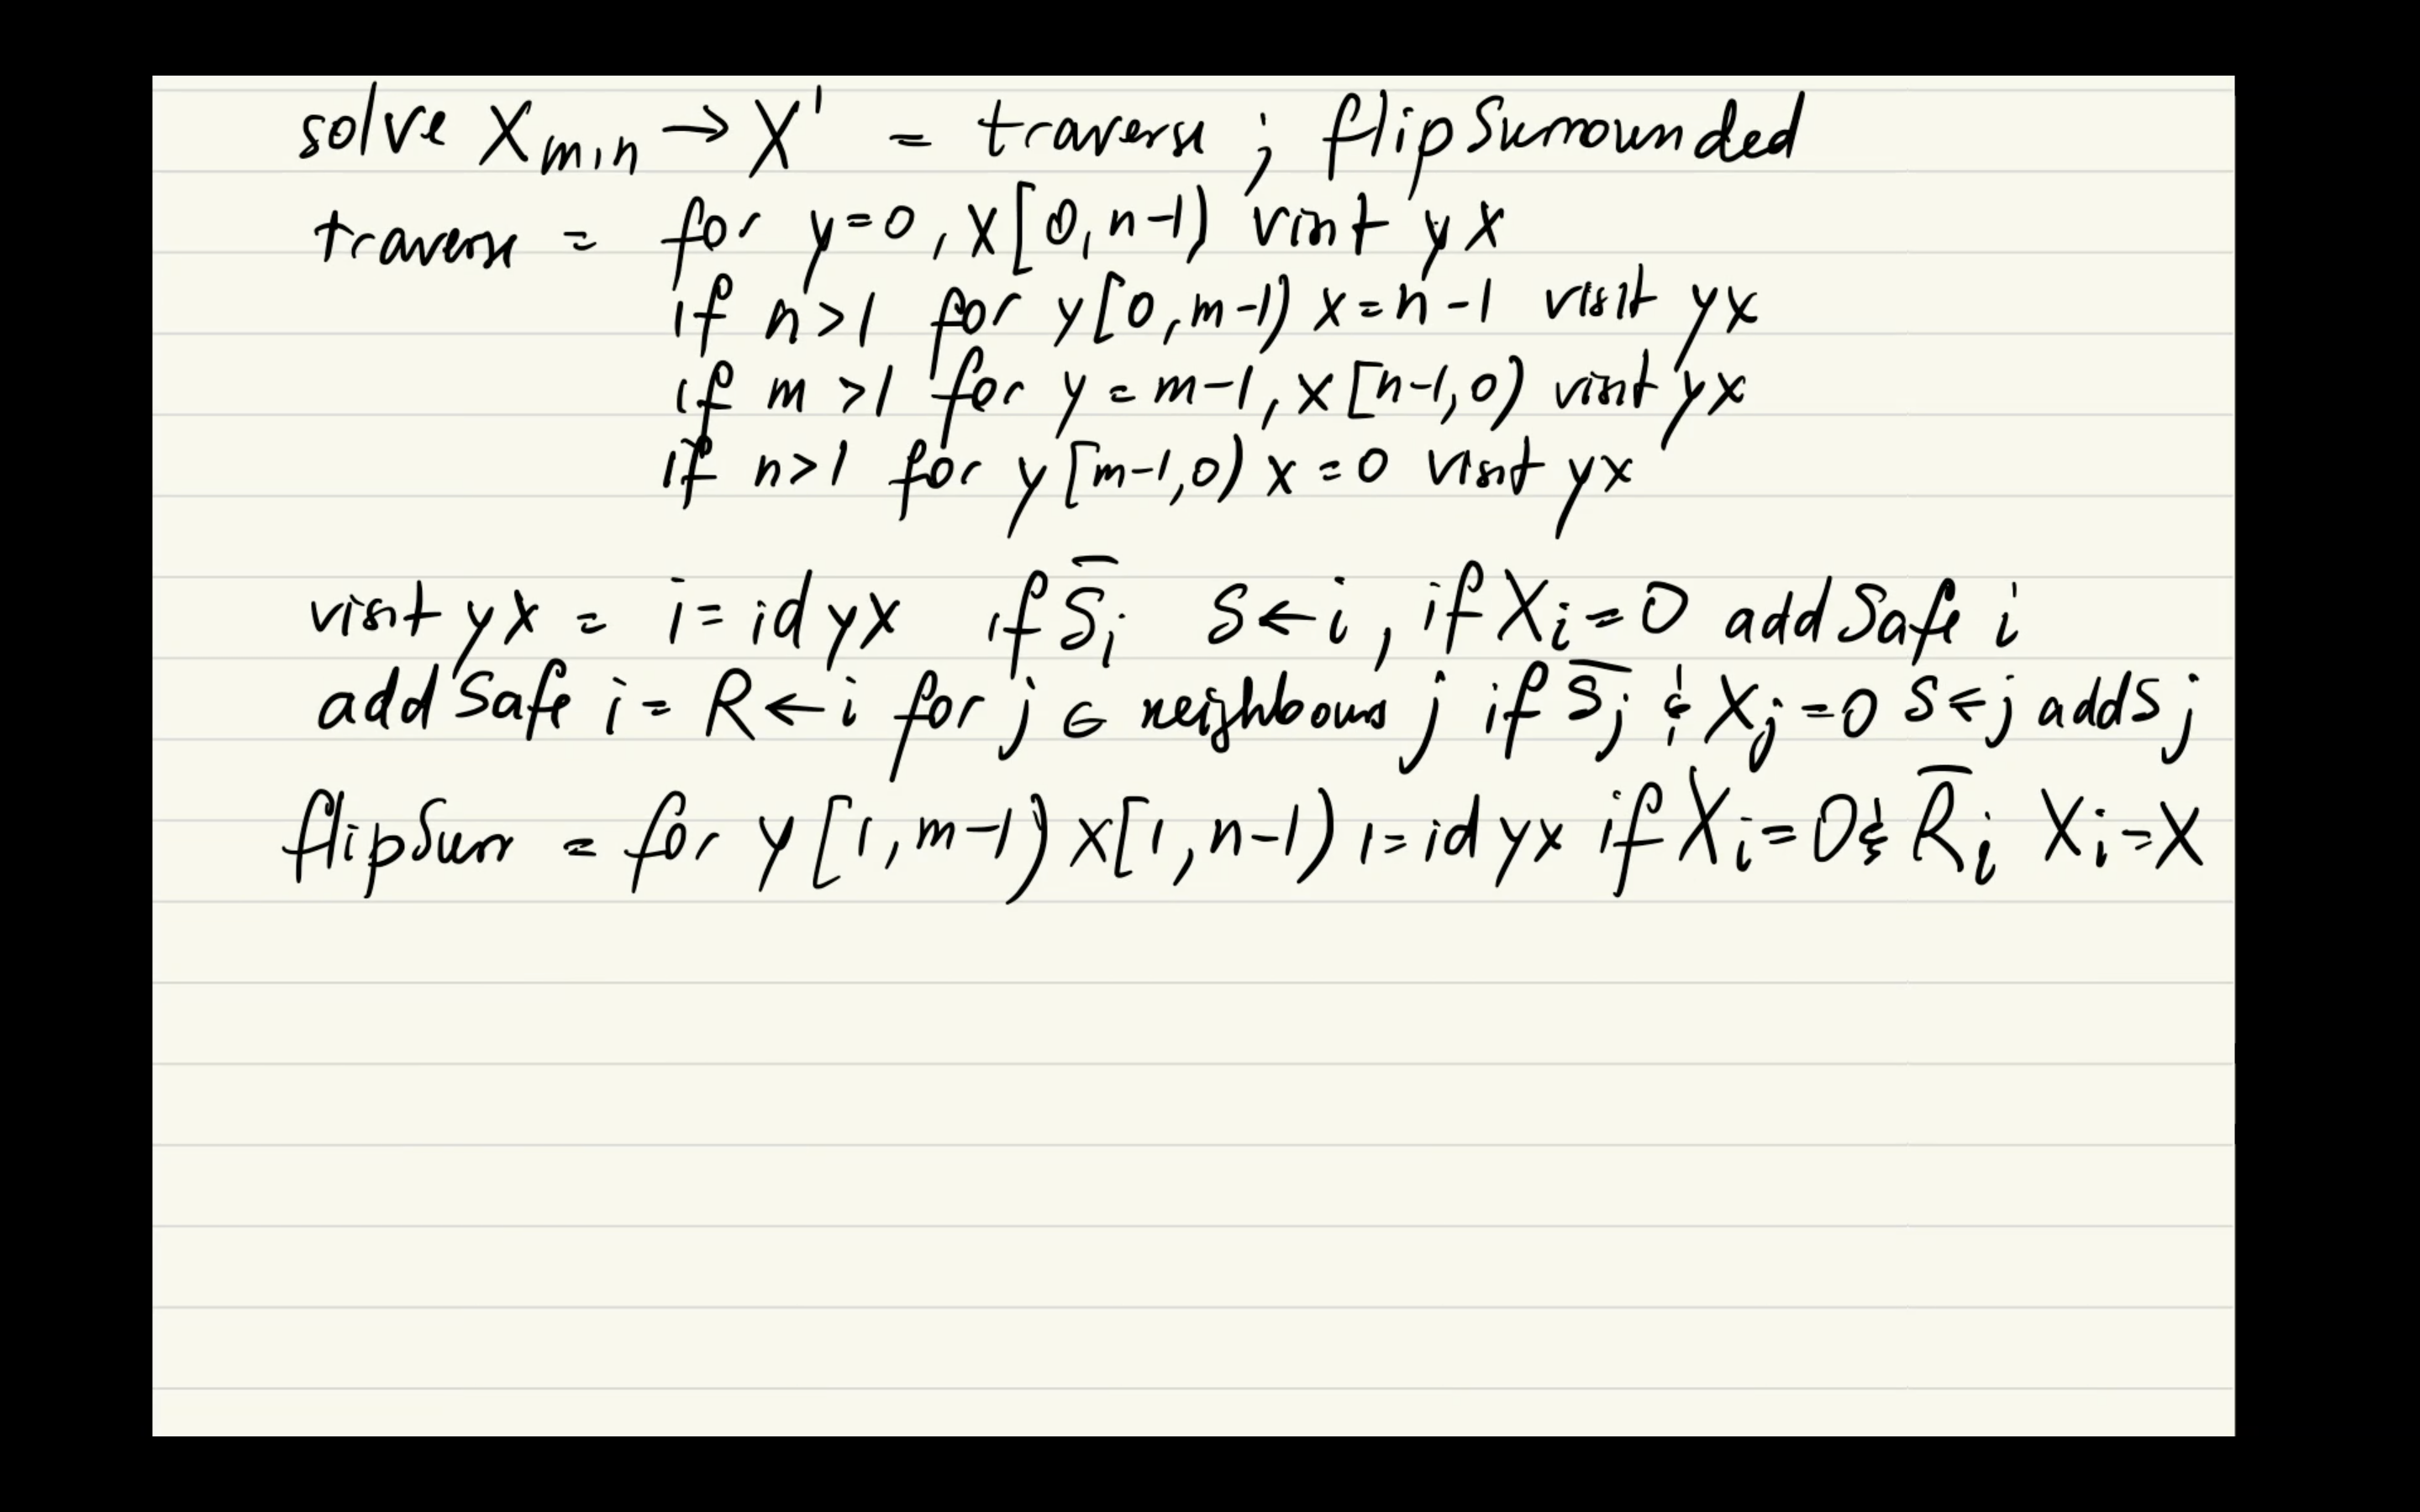 solve X_min → X' = traverse ; flipSurrounded
traverse = for y=0, x[0,n-1) visit yx
if n>1 for y[0,m-1) x=n-1 visit yx
if m>1 for y=m-1, x[n-1,0) visit yx
if n>1 for y[m-1,0) x=0 visit yx
visit yx = i=id yx if S̅i S←i, if Xi=O addSafe i
addSafe i = R←i for j ∈ neighbours j if S̅j & Xj=O S←j addS j
flipSurr = for y[1,m-1) x[1,n-1) i=id yx if Xi=O & R̅i Xi=X